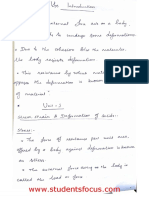 Introduction
external force acts on a body
to undergo some deformation.
Due to the cohesion b/w the molecules,
the body resists deformation
This resistance by which material
of opposes the deformation is
of material
Unit - I
Stress, Strain & Deformation of Solids.
Stress:-
The force of resistance per unit area,
offered by a body against deformation is known
as stress.
The external force acting on the body is
called the load or force
www.studentsfocus.com